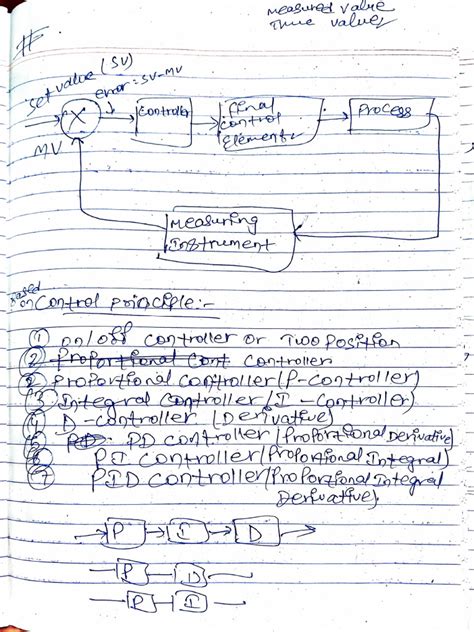 measured value
True value
#
Set value (SV)
error = SV-MV
X
MV
Controller
final
control
Element
Process
Measuring
Instrument
Based
on Control principle:-
① on/off controller or Two position
② Proportional Cont controller
② Proportional controller (P-controller)
③ Integral Controller (I - Controller)
④ D-controller (Derivative)
⑤ PD PD controller (Proportional Derivative)
⑥ PI controller (Proportional Integral)
⑦ PID Controller (Proportional Integral
Derivative)
P I D
P D
P I